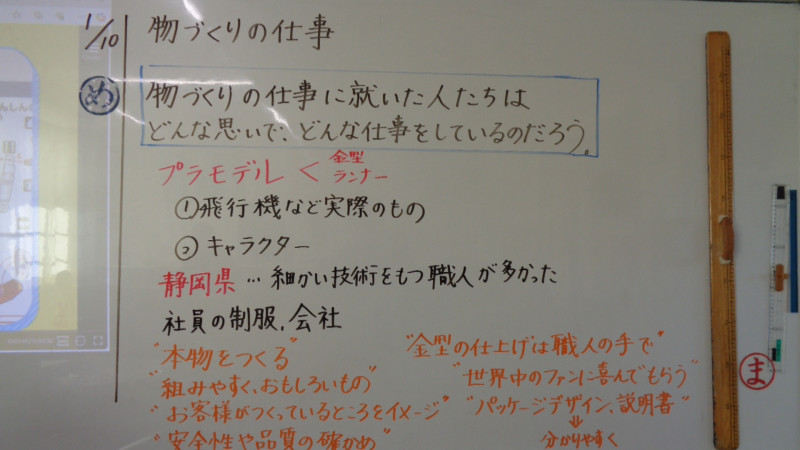 1/10
物づくりの仕事
め
物づくりの仕事に就いた人たちは
どんな思いで、どんな仕事をしているのだろう。
プラモデル < 金型
ランナー
①飛行機など実際のもの
②キャラクター
静岡県…細かい技術をもつ職人が多かった
社員の制服、会社
"本物をつくる"
"組みやすく、おもしろいもの"
"お客様がつくっているところをイメージ"
"安全性や品質の確かめ
"金型の仕上げ"は職人の手で"
"世界中のファンに喜んでもらう"
"パッケージデザイン、説明書"
⇓
分かりやすく
ま